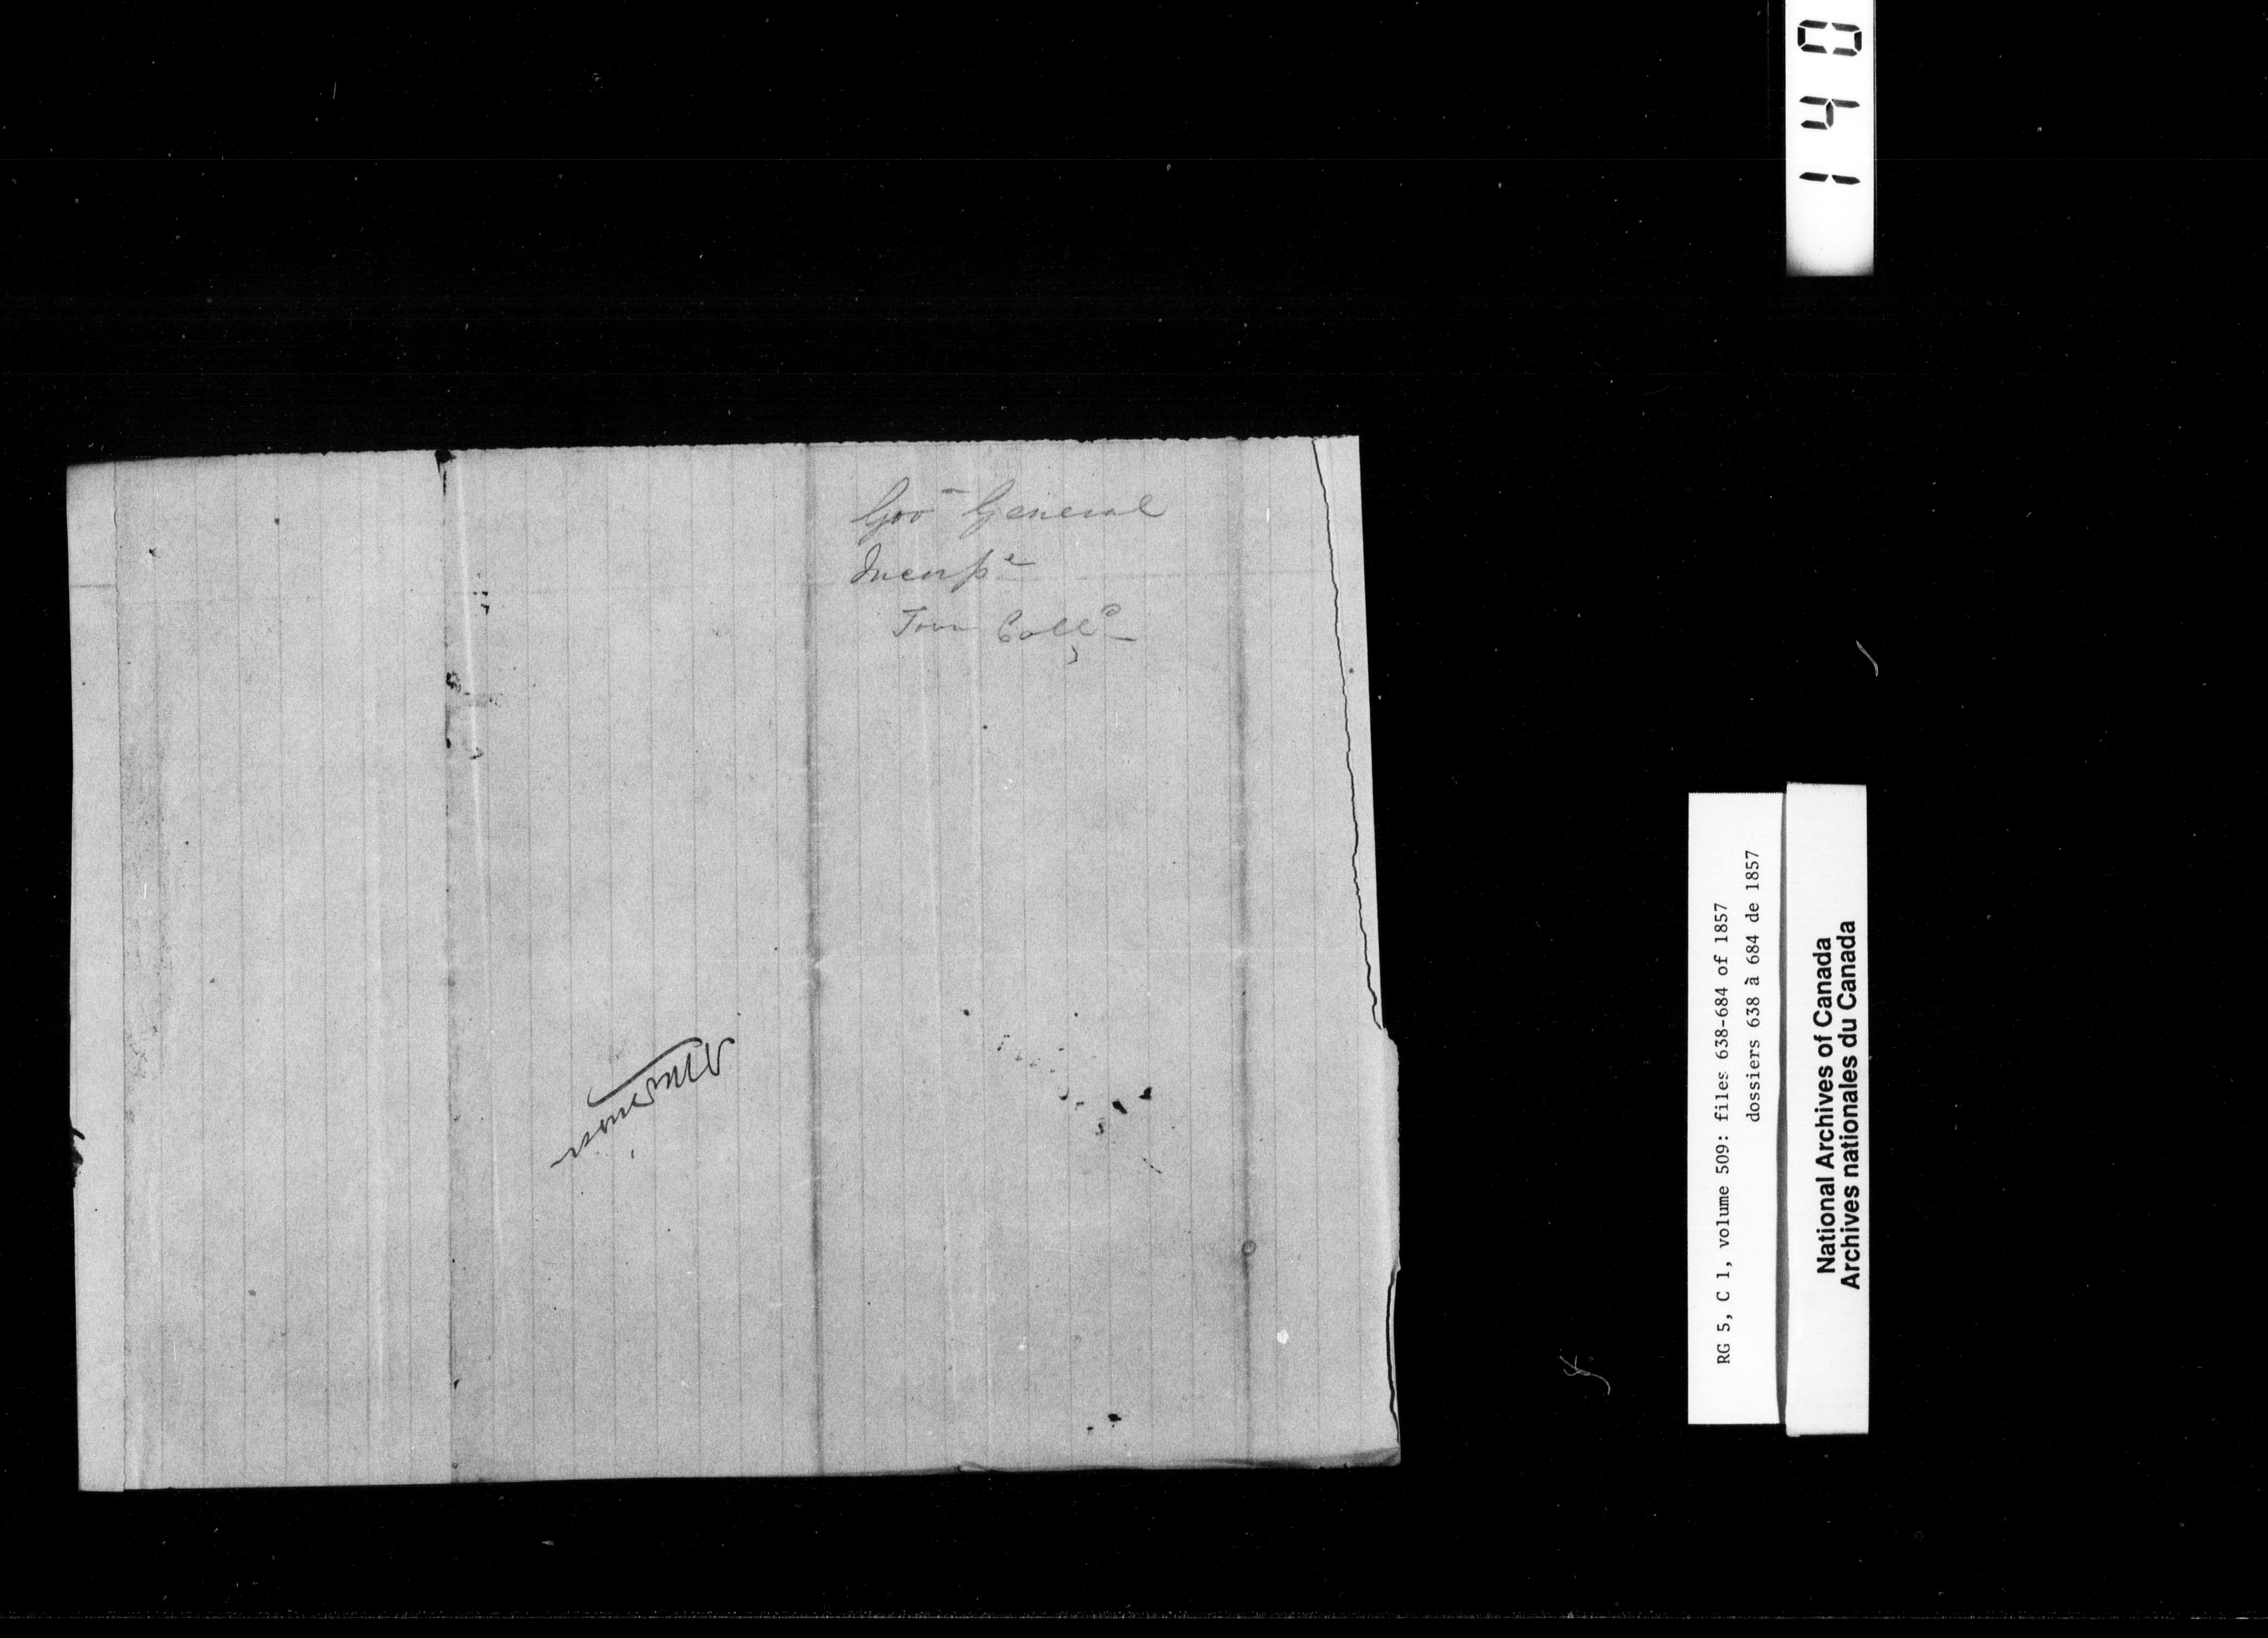 140
Gov^r General
Incorp^e
Coll^e
RG 5, C 1, volume 509: files 638-684 of 1857
dossiers 638 à 684 de 1857
National Archives of Canada
Archives nationales du Canada